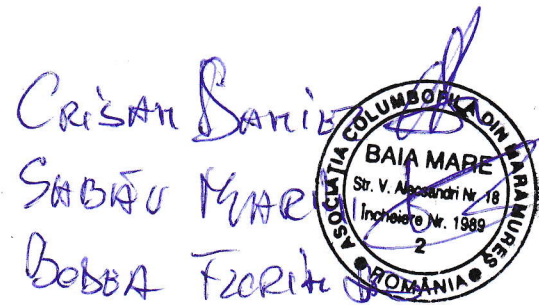 CRIȘAN DANIEL
SABĂU MARI
BOBBA FLORIN
ASOCIAȚIA COLUMBOFILĂ DIN MARAMUREȘ
BAIA MARE
Str. V. Alecsandri Nr. 18
Încheiere Nr. 1989
2
ROMÂNIA